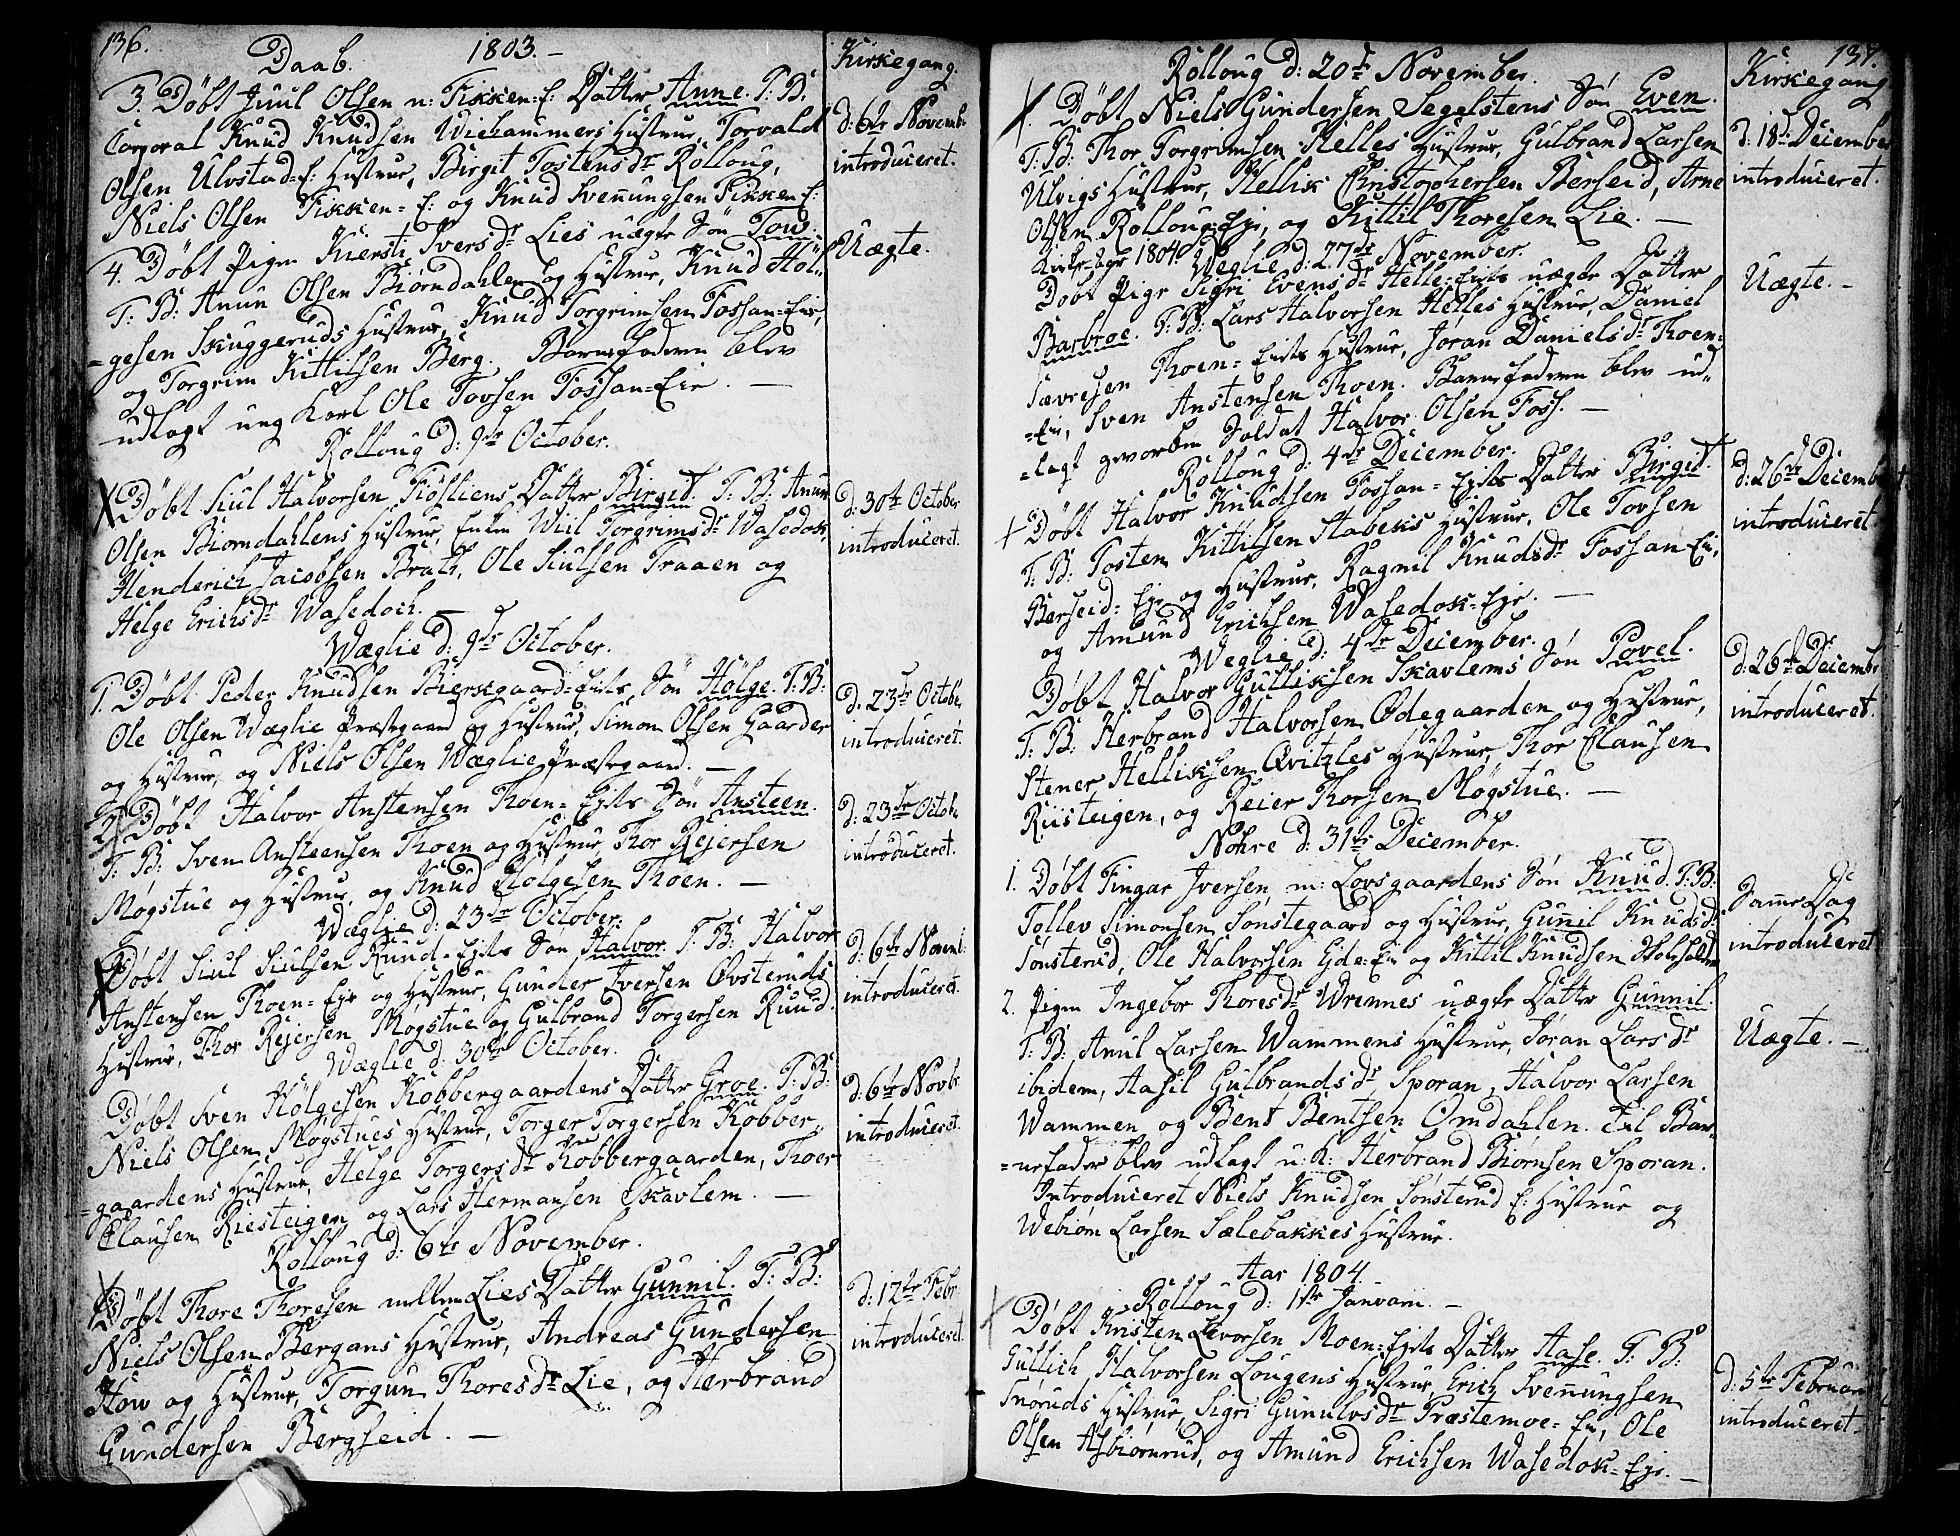 136.
Daab. 1803.-
Kirkegang.
3. Døbt Juul Olsen n: Fikken-E: Datter Anne. T: B:
Corporal Knud Knudsen Wiehammers Hustrue, Torvald
Olsen Ulvstad-E: Hustrue, Birgit Tostensdr Rolloug,
Niels Olsen Fikken-E: og Knud Svennungsen Fikken E:
d: 6te Novemb:
introduceret.
4. Døbt Pigen Kiersti Iversdr Lies uægte Søn Tow.
T: B: Anun Olsen Biørndahlen og Hustrue, Knud Høl-
-gesen Skuggeruds Hustrue, Knud Torgrimsen Fossan-Eie,
og Torgrim Kittilsen Berg. Barnefaderen blev
udlagt ung Karl Ole Tovsen Fossan-Eie. -
Uægte.
Rolloug d: 9de October.
Døbt Siul Halvorsen Fiösliens Datter Birgit. T: B: Anun
Olsen Biørndahlens Hustrue, Enken Wiil Torgrimsdr Wasedok,
Henderich Jacobsen Bratz, Ole Siulsen Traaen og
Helge Erichsdr Wasedoch. -
d: 30te October
introduceret.
Wæglie d: 9de October.
1. Døbt Peder Knudsen Bierkgaard-Eiets Søn Hölge. T: B:
Ole Olsen Wæglie Præstegaard og Hustrue, Simon Olsen Gaarder
og Hustrue, og Niels Olsen Wæglie Præstegaard. -
d: 23de Octobr.
introduceret.
2. Døbt Halvor Anstensen Thoen-Eiets Søn Ansteen.
T: B: Sven Ansteensen Thoen og Hustrue, Thor Rejersen
Mögstue og Hustrue, og Knud Hölgesen Thoen. -
d: 23de Octob:
introduceret.
Wæglie d: 23de October.
Døbt Siul Siulsen Ruud-Eiets Søn Halvor. T: B: Halvor
Anstensen Thoen-Eje og Hustrue, Gunder Iversen Øvsteruds
Hustrue, Thor Rejersen Mögstue og Gulbrand Torgersen Ruud.
d: 6te Novemb:
introduceret.
Wæglie d: 30te October.
Døbt Sven Hölgesen Kobbergaardens Datter Groe. T: B:
Niels Olsen Mögstues Hustrue, Torger Torgersen Kobber-
-gaardens Hustrue, Helge Torgersdr Kobbergaarden, Thoer
Clausen Riesteigen og Lars Hermansen Skavlem. -
d: 6te Novbr.
introduceret.
Rolloug d: 6te November.
Døbt Thore Thoresen mellem Lies Datter Gunnil. T: B:
Niels Olsen Bergans Hustrue, Andreas Gundersen
How og Hustrue, Torgun Thoresdr Lie, og Herbrand
Gundersen Bergseid. -
d: 12te Febr.
introduceret.
137.
Kirkegang
Rolloug d: 20de November.
Døbt Niels Gundersen Segelstens Søn Even.
T: B: Thor Torgrimsen Helles Hustrue, Gulbrand Larsen
Ulvigs Hustrue, Hellik Christophersen Berseid, Arne
Olsen Rolloug-Eje, og Kittil Thoresen Lie. -
d: 18de December
introduceret.
Weglie d: 27de November.
Døbt Pige Sigri Evensdr Helle-Eiets uægte Datter
Barbroe. T: B: Lars Halvorsen Helles Hustrue, Daniel
Sævresen Thoen-Eiets Hustrue, Jöran Danielsdr Thoen-
-Eie, Sven Anstensen Thoen. Barnefaderen blev ud-
-lagt geworben Soldat Halvor Olsen Foss. -
Uægte. -
Rolloug d: 4de December.
Døbt Halvor Knudsen Fossan-Eiets Datter Birgit.
T: B: Tosten Kittilsen Stabeks Hustrue, Ole Tovsen
Berseid-Eje og Hustrue, Ragnil Knudsdr Fossan-Eie,
og Amund Erichsen Wasedok-Eje. -
d: 26de December
introduceret.
Weglie d: 4de December.
Døbt Halvor Gulliksen Skavlems Søn Povel.
T: B: Herbrand Halvorsen Ødegaarden og Hustrue,
Stener Helliksen Qvitzles Hustrue, Thor Clausen
Riisteigen, og Reier Thorsen Mögstue. -
d: 26de Decembr
introduceret.
Nohre d: 31te December.
1. Døbt Fingar Iversen m: Lovsgaardens Søn Knud. T: B:
Tollev Simonsen Sönstegaard og Hustrue, Gunil Knudsdr
Sönsterud, Ole Halvorsen Eide-Eie og Kittil Knudsen
Samme Dag
introduceret
2. Pigen Ingebor Thoresdr Wrennes uægte Datter Gunnil.
T: B: Anul Larsen Wammens Hustrue, Jöran Larsdr
ibidem, Aasil Gulbrandsdr Sporan, Halvor Larsen
Wammen og Bent Bentsen Omdahlen. Til Bar-
-nefader blev udlagt u: K: Herbrand Biörnsen Sporan.
Uægte. -
Introduceret Niels Knudsen Sönsterud E: Hustrue og
Webiörn Larsen Sælebakkes Hustrue.
Aar 1804.
Rolloug d: 1te Januarii. -
Døbt Kristen Levorsen Moen-Eiets Datter Aase. T: B:
Gullich Halvorsen Lougens Hustrue, Erich Svennungsen
Snöruds Hustrue, Sigri Gunulvsdr Præstemoe-Eie, Ole
Olsen Asbiörnrud, og Amund Erichsen Wasedok-Eje. -
d: 5te Februari
introduceret.